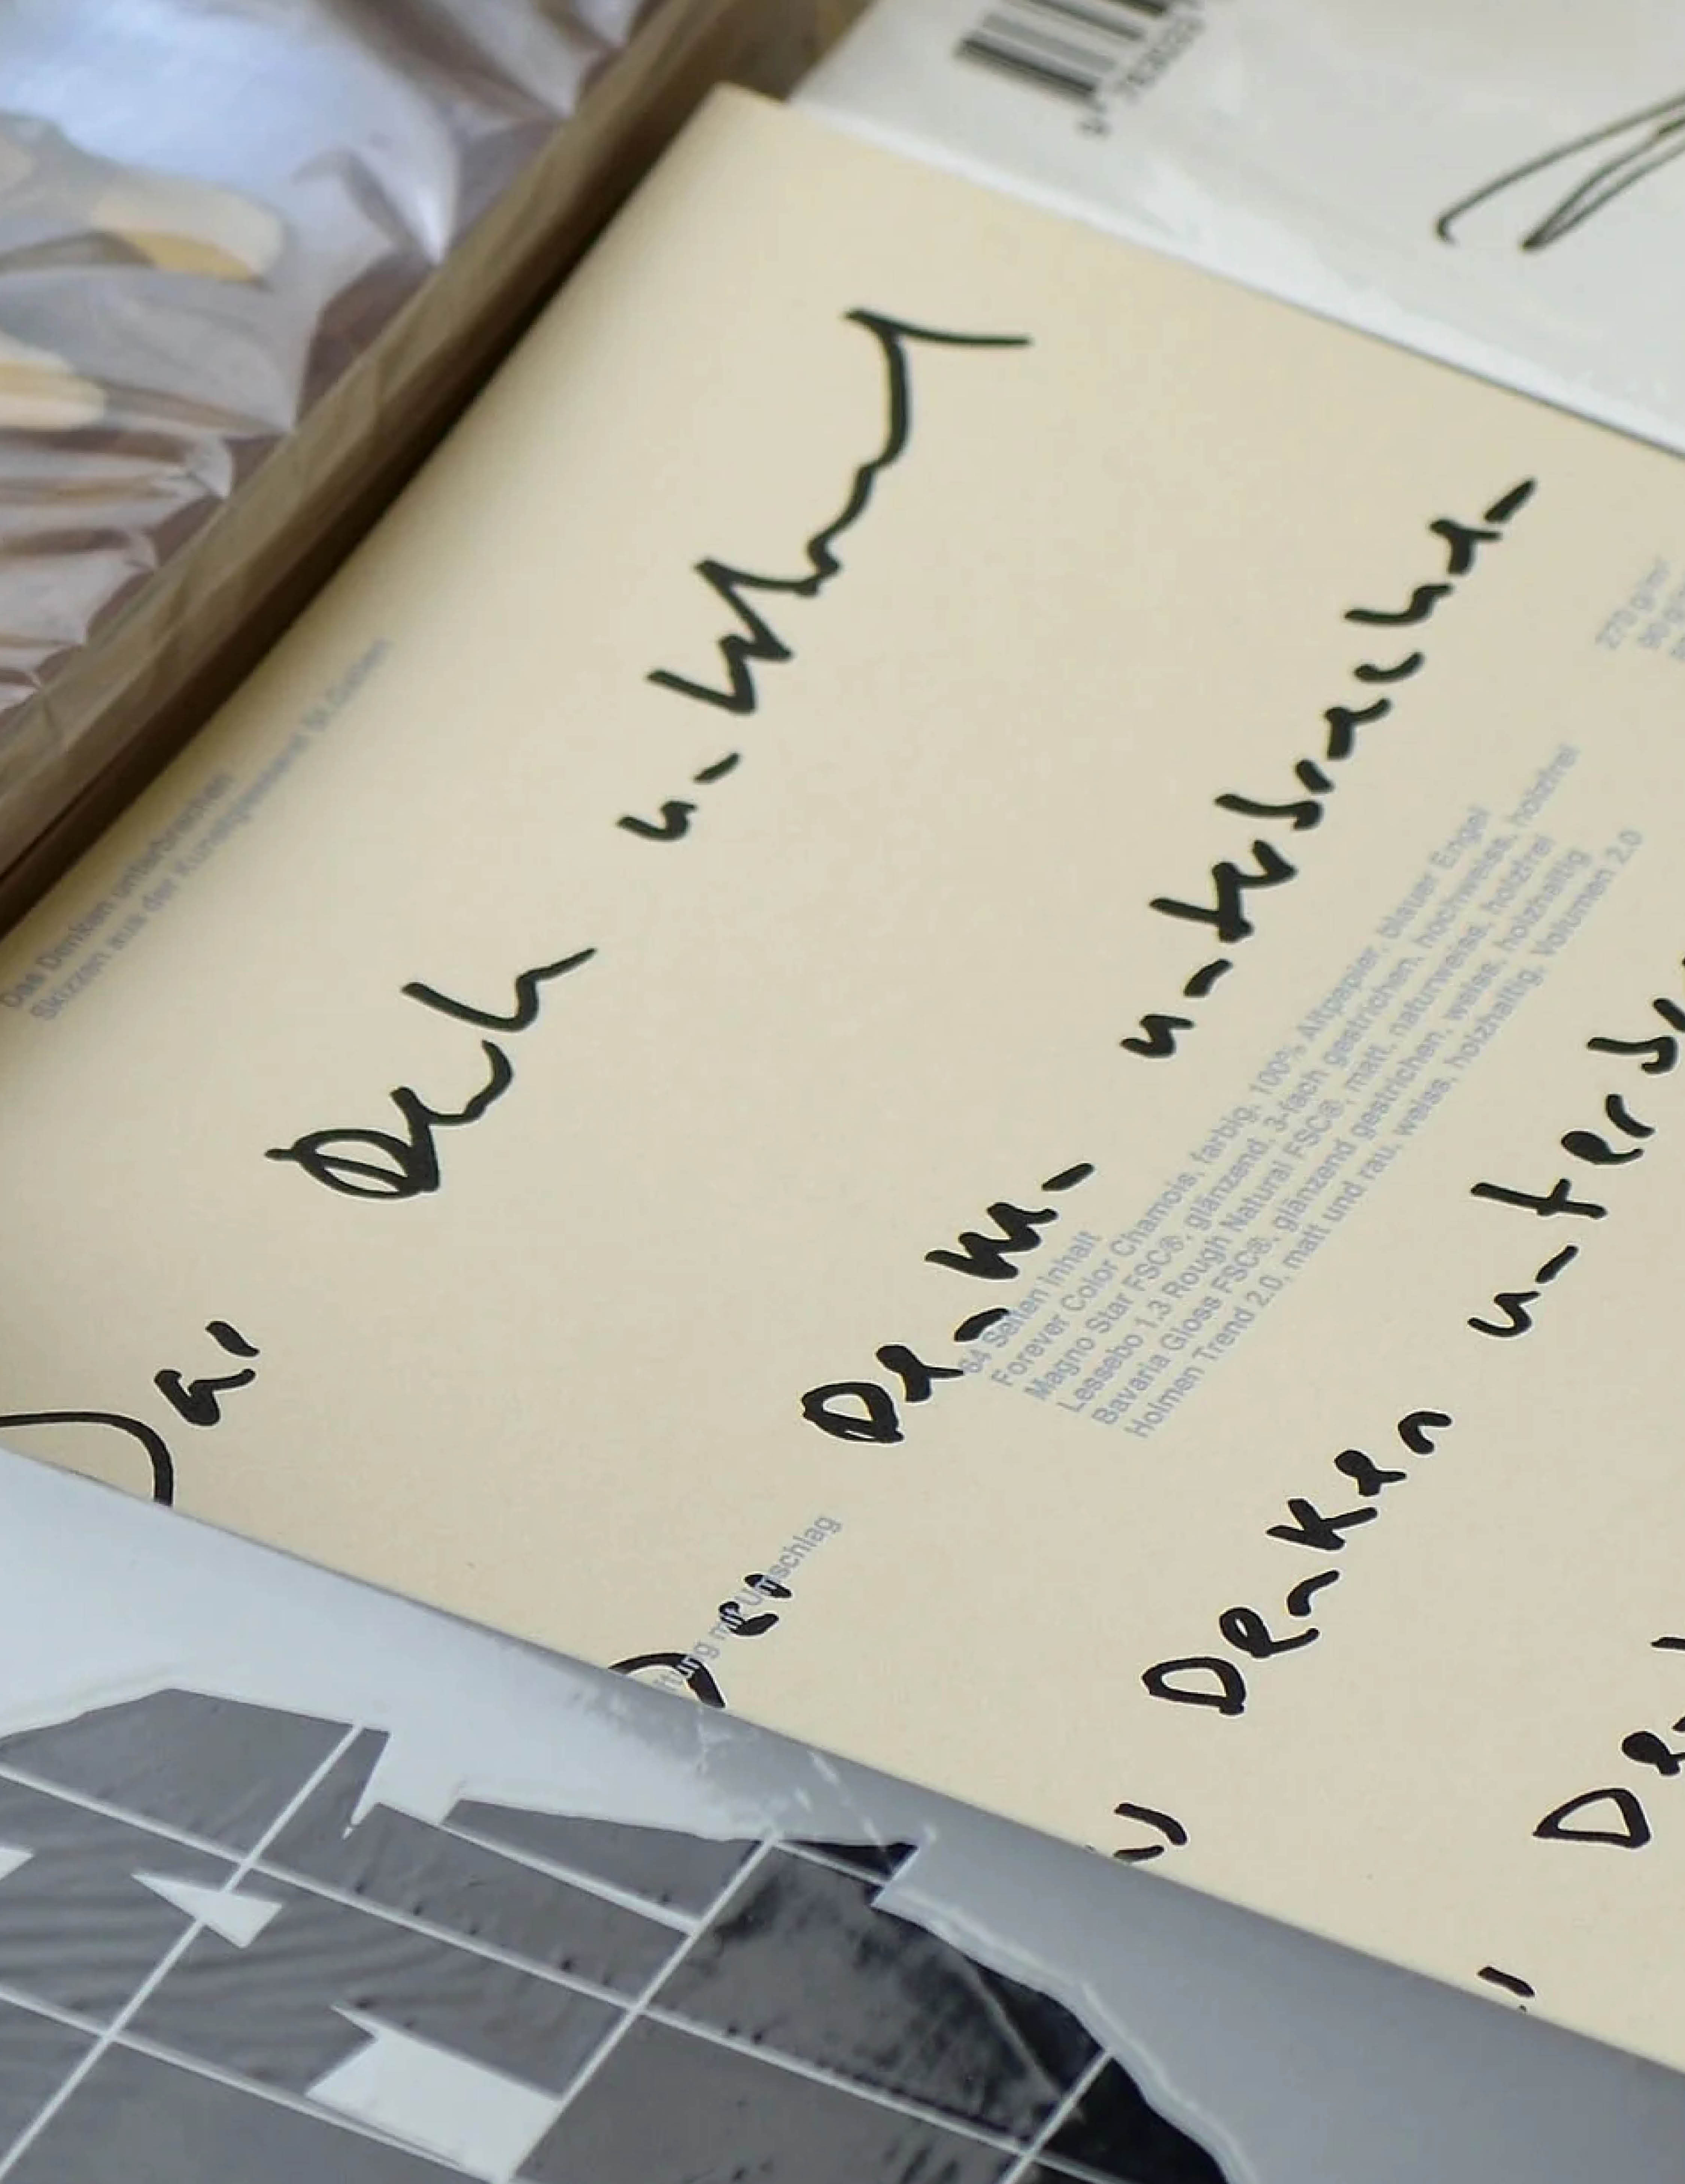 Das Denken unterbrechen
Skizzen aus der Kunstgegenwart St.Gallen
Das Denken unterbrechen
Denken unterbrechen
Denken unterb
64 Seiten Inhalt
Forever Color Chamois, farbig, 100% Altpapier, blauer Engel
Magno Star FSC®, glänzend, 3-fach gestrichen, hochweiss, holzfrei
Lessebo 1.3 Rough Natural FSC®, matt, naturweiss, holzfrei
Bavaria Gloss FSC®, glänzend gestrichen, weiss, holzhaltig
Holmen Trend 2.0, matt und rau, weiss, holzhaltig, Volumen 2.0
270 g/m²
mit Umschlag